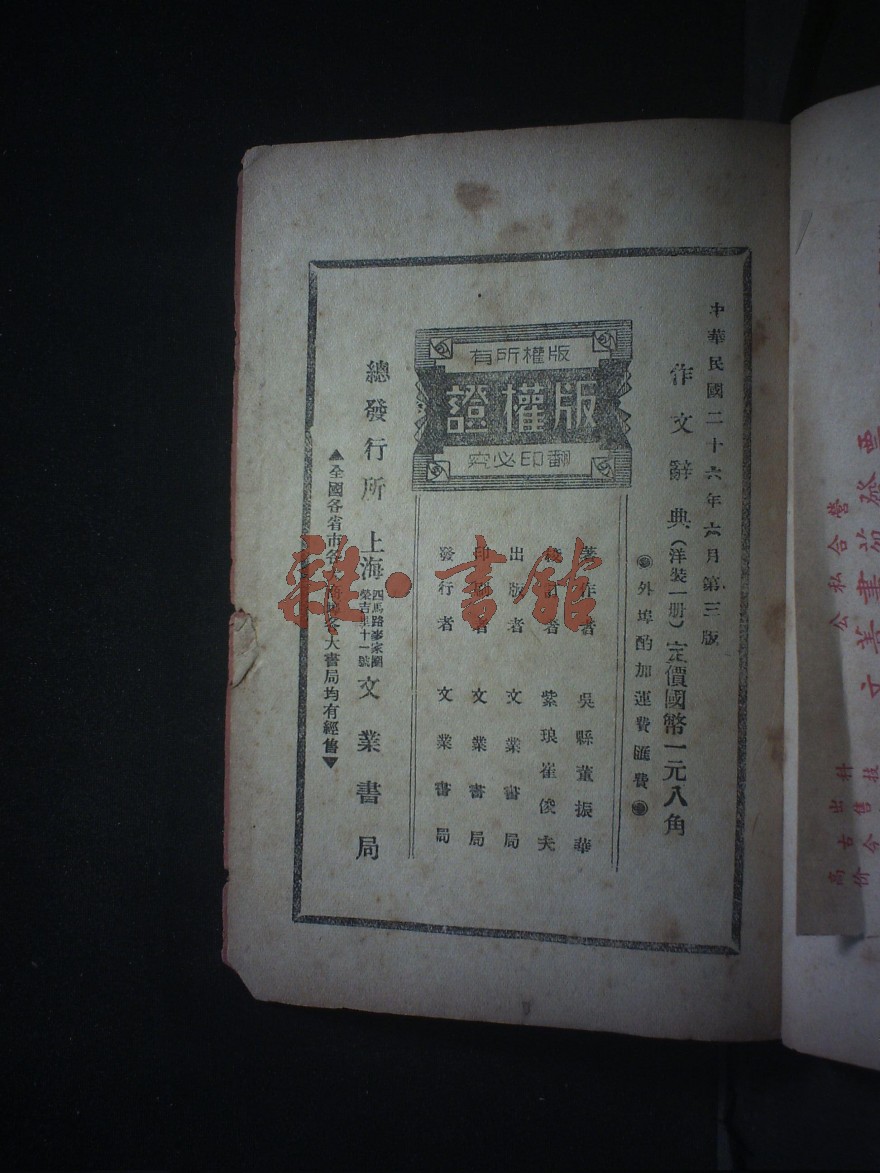 中華民國二十六年六月第三版
作文辭典(洋裝一册)定價國幣一元八角
外埠酌加運費匯費
版權所有
版權證
翻印必究
著作者 吳縣董振華
者 紫琅崔俊夫
出版者 文業書局
印刷者 文業書局
發行者 文業書局
總發行所 上海 四馬路麥家圈 榮吉里十一號 文業書局
▲全國各省市各大書局均有經售▼
雜·書館
公私合營